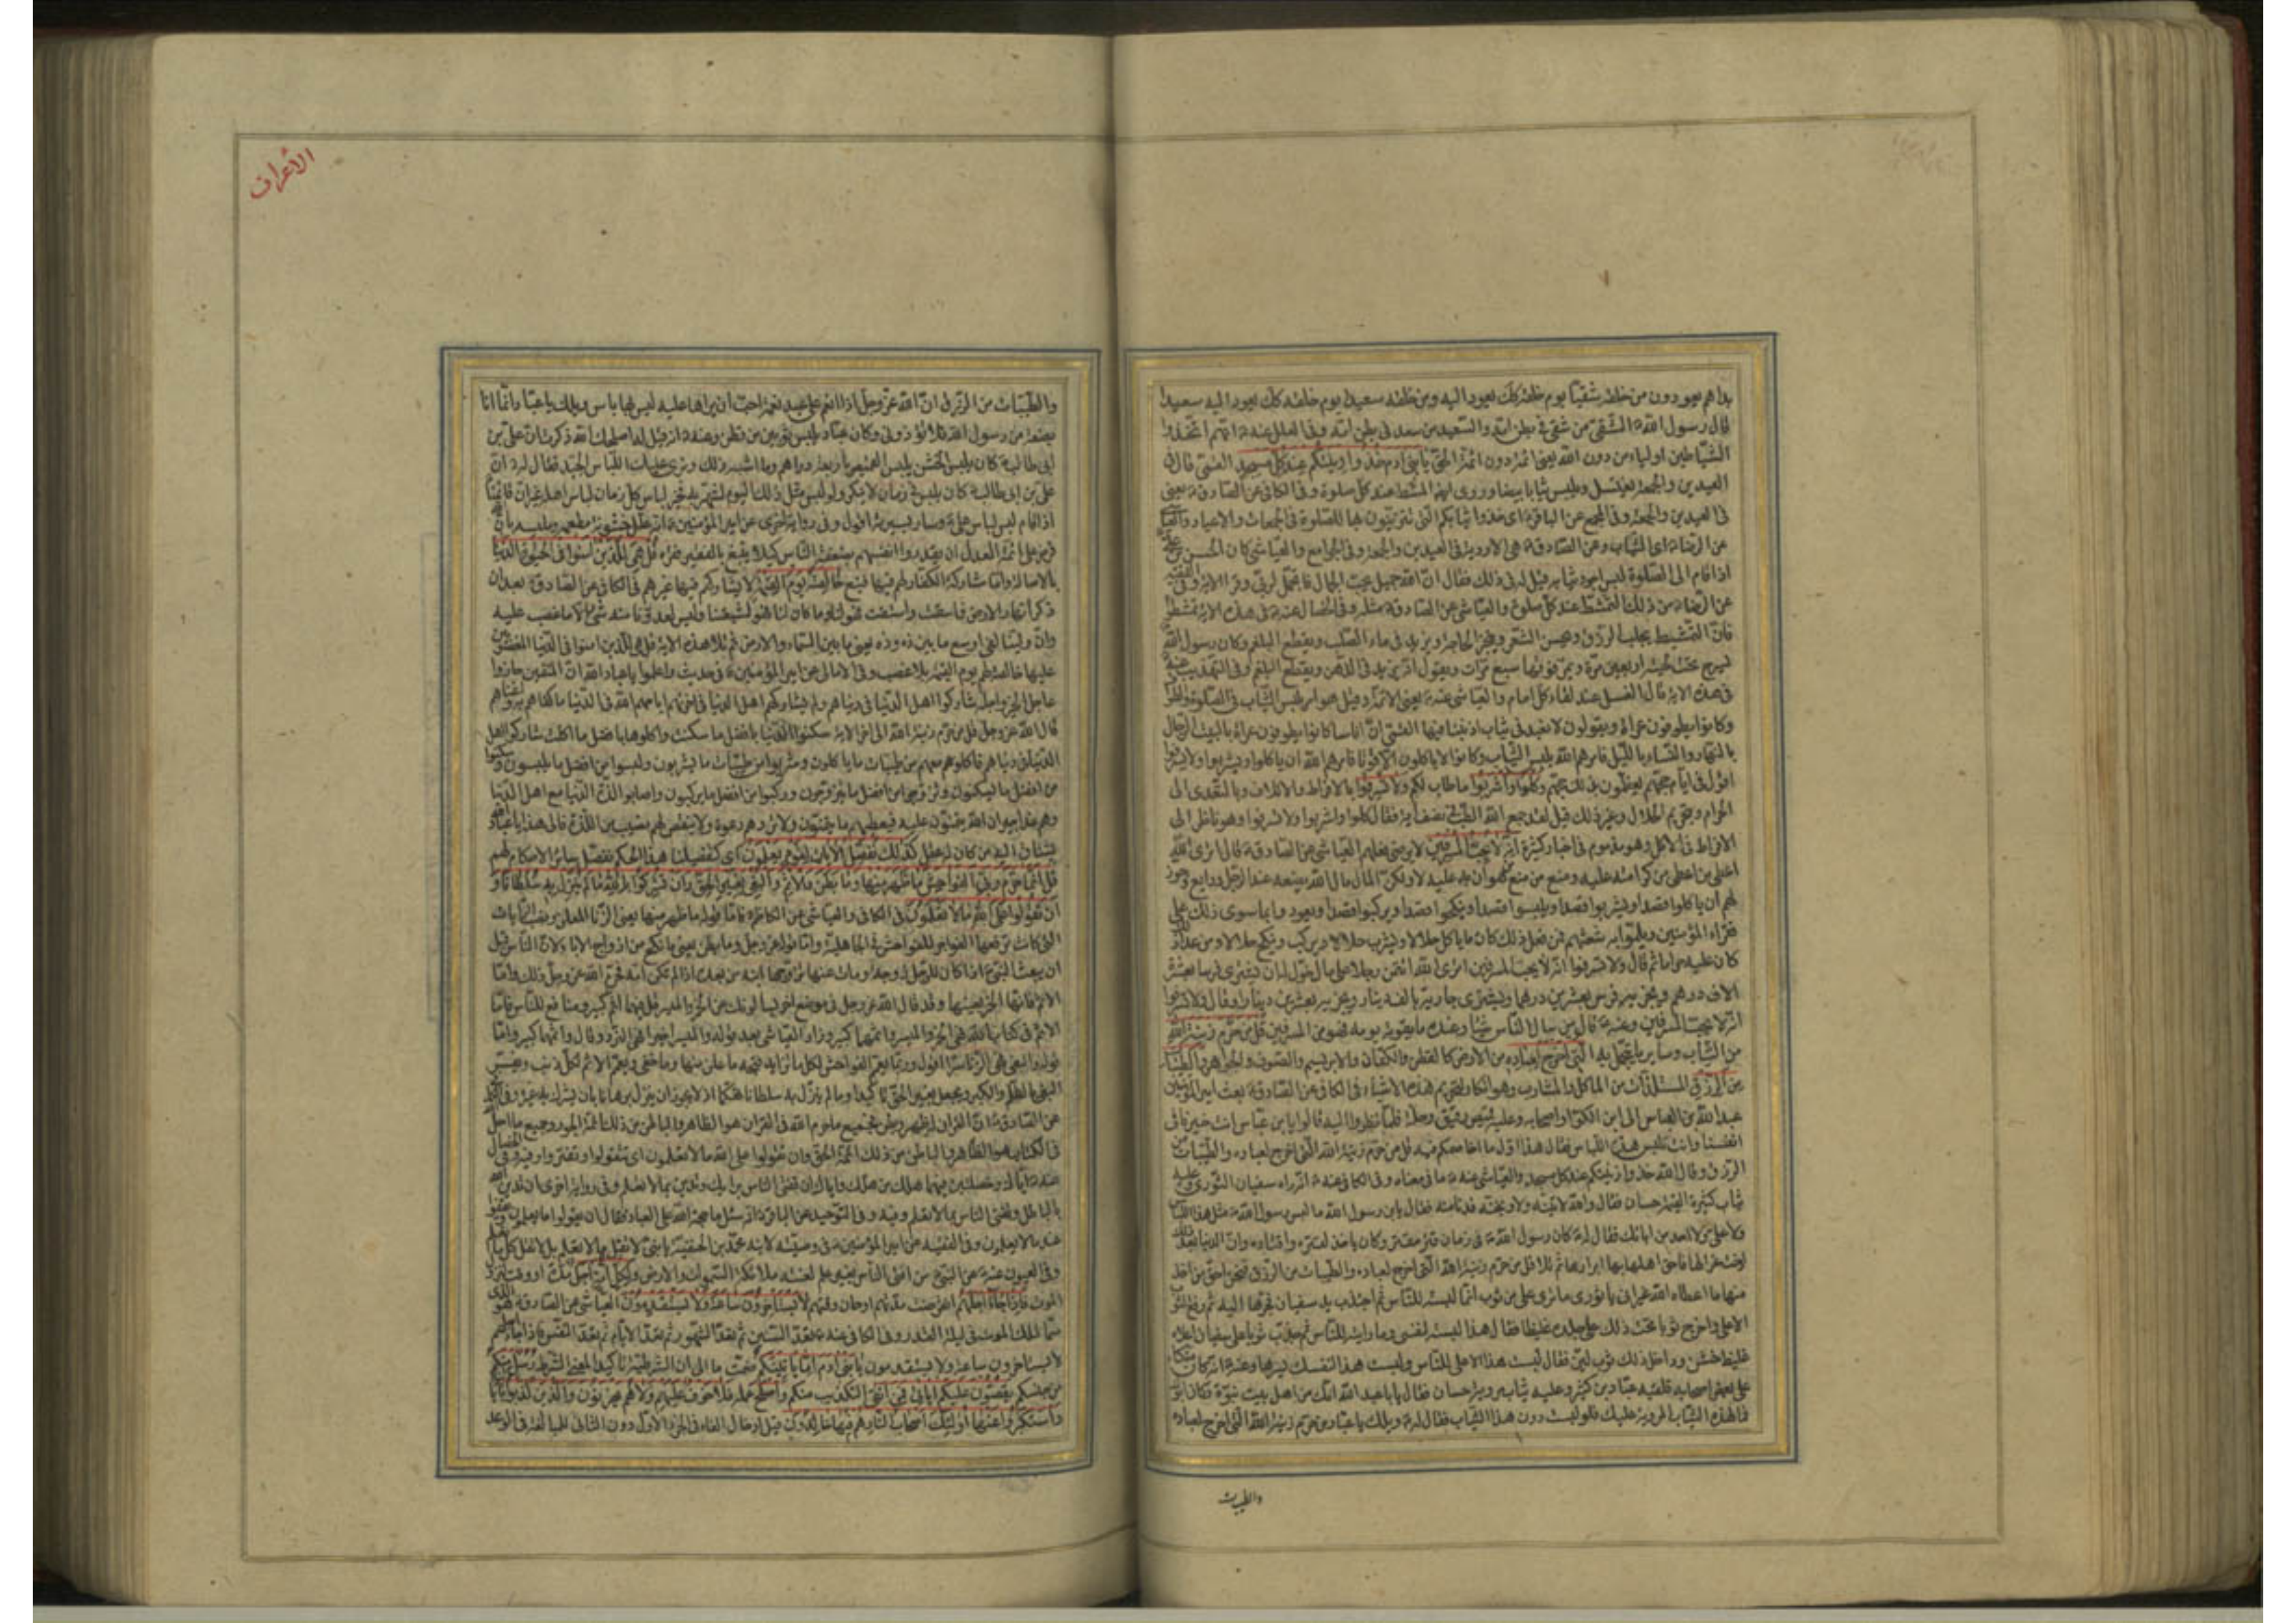 بداهم يعودون من خلقه شقيّا يوم خلقه كك يعود اليه ومن خلقه سعيدا يوم خلقه كك يعود اليه سعيدا
قال رسول الله ص الشّقىّ من شقى فى بطن امّه والسّعيد من سعد فى بطن امّه وفى العلل عنه ع انّهم اتّخذوا
الشّياطين اولياء من دون الله يعنى ائمّة دون ائمّة الحقّ يا بنى ادم خذوا زينتكم عند كلّ مسجد القمّى قال فى
العيدين والجمعة يغتسل ويلبس ثيابا بيضا وروى ايضا المشط عند كلّ صلوة وفى الكافى عن الصّادق ع يعنى
فى العيدين والجمعة وفى المجمع عن الباقر ع اى خذوا ثيابكم الّتى تتزيّنون بها للصّلوة فى الجمعات والاعياد والعيّا
عن الرّضا ع اى الثّياب وعن الصّادق ع هى الاردية فى العيدين والجمعة وفى الجوامع والعيّاشى كان الحسن بن
اذا قام الى الصّلوة لبس اجود ثيابه فقيل له فى ذلك فقال انّ الله جميل يحبّ الجمال فاتجمّل لربّى وقرء الاية وفى الفقيه
عن الرّضا ع من ذلك التمشّط عند كلّ صلوة والعيّاشى عن الصّادق ع مثله وفى الخصال عنه ع فى هذه الاية تمشّطوا
فانّ التمشيط يجلب الرّزق ويحسن الشّعر وينجز الحاجة ويزيد فى ماء الصّلب ويقطع البلغم وكان رسول الله
يسرّح تحت لحيته اربعين مرّة ويمن فوقها سبع مرّات ويقول انّه يزيد فى الذّهن ويقطع البلغم وفى التهذيب عنه
فى هذه الاية قال الغسل عند لقاء كلّ امام والعيّاشى عنه ع يعنى الائمّة وقيل هو امر بلبس الثّياب فى الصّلوة والطّوا
وكانوا يطوفون عراة ويقولون لا نعبد فى ثياب اذنبنا فيها القمّى انّ اناسا كانوا يطوفون عراة بالبيت الرّجال
بالنّهار والنّساء باللّيل فامرهم الله بلبس الثّياب وكانوا لا ياكلون الّا قوتا فامرهم الله ان ياكلوا ويشربوا ولا يسرفوا
اقول فى ايّام حجّهم يعظّمون بذلك حجّهم وكلوا واشربوا ما طاب لكم ولا تسرفوا بالافراط والاتلاف وبالتّعدى الى
الحرام وبتحريم الحلال وغير ذلك قيل لقد جمع الله الطّبّ فى نصف اية فقال كلوا واشربوا ولا تسرفوا وهو ناظر الى
الافراط فى الاكل وهو مذموم فى اخبار كثيرة انّه لا يحبّ المسرفين لا يرضى فعلهم العيّاشى عن الصّادق ع قال اترى الله
اعطى من اعطى من كرامته عليه ومنع من منع من هوان به عليه لا ولكنّ المال مال الله يضعه عند الرّجل ودايع وجوّز
لهم ان ياكلوا قصدا ويشربوا قصدا ويلبسوا قصدا وينكحوا قصدا ويركبوا قصدا ويعود وا بما سوى ذلك على
فقراء المؤمنين ويلمّوا به شعثهم فمن فعل ذلك كان ما ياكل حلالا ويشرب حلالا ويركب وينكح حلالا ومن عدا ذلك
كان عليه حراما ثم قال ولا تسرفوا انّه لا يحبّ المسرفين اترى الله ائتمن رجلا على مال خوّل له ان يشترى فرسا بعشرة
الاف درهم ويجزيه فرس بعشرين درهما ويشترى جارية بالف دينار ويجزيه بعشرين دينارا وقال ولا تسرفوا
انّه لا يحبّ المسرفين وعنه ع قال من سال النّاس شيئا وعنده ما يقوته يومه فهو من المسرفين قل من حرّم زينة الله
من الثّياب وساير ما يتجمّل به الّتى اخرج لعباده من الارض كالقطن والكتّان والابريسم والصّوف والجواهر والطّيّبا
من الرّزق المستلذّات من الماكل والمشارب وهو انكار لتحريم هذه الاشياء فى الكافى عن الصّادق ع بعث امير المؤمنين
عبد الله بن العباس الى ابن الكوّا واصحابه وعليه قميص رقيق وحلّة فلمّا نظروا اليه قالوا يابن عبّاس انت خيرنا فى
انفسنا وانت تلبس هذا اللّباس فقال هذا اوّل ما اخاصمكم فيه قل من حرّم زينة الله الّتى اخرج لعباده والطّيّبات من
الرّزق وقال الله خذوا زينتكم عند كلّ مسجد والعيّاشى عنه ع ما فى معناه وفى الكافى عنه ع انّه راه سفيان الثّورى وعليه
ثياب كثيرة القيمة حسان فقال والله لاتينّه ولاوبّخنّه فدنا منه فقال يابن رسول الله ما لبس رسول الله ص مثل هذا اللّباس
ولا علىّ ولا احد من ابائك فقال له كان رسول الله ص فى زمان قتر مقتر وكان ياخذ لقتره واقتاره وانّ الدّنيا بعد ذلك
ارخت عزاليها فاحقّ اهلها بها ابرارها ثم تلا قل من حرّم زينة الله الّتى اخرج لعباده والطّيبات من الرّزق فنحن احقّ من اخذ
منها ما اعطاه الله غير انّى يا ثورى ما ترى علىّ من ثوب انّما لبسته للنّاس ثم اجتذب يد سفيان فجرّها اليه ثم رفع الثّو
الاعلى واخرج ثوبا تحت ذلك على جلده غليظا فقال هذا لبسته لنفسى وما رايته للنّاس ثم جذب ثوبا على سفيان اعلاه
غليظ خشن وداخل ذلك ثوب ليّن فقال لبست هذا الاعلى للنّاس ولبست هذا لنفسك تسرّها وعنه ع انّه كان متّكئا
على بعض اصحابه فلقيه عبّاد بن كثير وعليه ثياب مرويّة حسان فقال يا با عبد الله انّك من اهل بيت نبوّة وكان ابوك
فما لهذه الثّياب المرويّة عليك فلو لبست دون هذا الثّياب فقال له ع ويلك يا عبّاد من حرّم زينة الله الّتى اخرج لعباده
والطيبات
الأعراف
والطّيّبات من الرّزق انّ الله عزّ وجلّ اذا انعم على عبد نعمة احبّ ان يراها عليه ليس بها باس ويلك يا عبّاد انّما انا
بضعة من رسول الله فلا تؤذونى وكان عبّاد يلبس ثوبين من قطن وعنه ع انّه قيل له اصلحك الله ذكرت انّ علىّ بن
ابى طالب ع كان يلبس الخشن يلبس القميص باربعة دراهم وما اشبه ذلك ونرى عليك اللّباس الجيّد فقال له انّ
علىّ بن ابى طالب ع كان يلبس فى زمان لا ينكر ولو لبس مثل ذلك اليوم لشهر به فخير لباس كلّ زمان لباس اهله غير انّ قائمنا
اذا قام لبس لباس علىّ ع وسار بسيرته اقول وفى رواية اخرى عن امير المؤمنين ع
فرض على ائمّة العدل ان يقدّروا انفسهم بضعفة النّاس كيلا يتبيّغ بالفقير فقره قل هى للّذين امنوا فى الحيوة الدّنيا
بالاصالة وامّا مشاركة الكفّار لهم فيها فتبع خالصة يوم القيمة لا يشاركهم فيها غيرهم فى الكافى عن الصّادق ع بعد ان
ذكر انهار الارض فما سقت واستقت فهو لنا وما كان لنا فهو لشيعتنا وليس لعدوّنا منه شئ الّا ما غصب عليه
وانّ وليّنا لفى اوسع ما بين ذه وذه يعنى ما بين السّماء والارض ثم تلا هذه الاية قل هى للّذين امنوا فى الدّنيا المغصوبين
عليها خالصة لهم يوم القيمة بلا غصب وفى الامالى عن امير المؤمنين ع فى حديث واعلموا يا عباد الله انّ المتّقين حازوا
عاجل الخير واجله شاركوا اهل الدّنيا فى دنياهم ولم يشاركهم اهل الدّنيا فى اخرتهم اباحهم الله فى الدّنيا ما كفاهم به واغناهم
قال الله عزّ وجلّ قل من حرّم زينة الله الى اخر الاية سكنوا الدّنيا بافضل ما سكنت واكلوها بافضل ما اكلت شاركوا اهل
الدّنيا فى دنياهم فاكلوا معهم من طيّبات ما ياكلون وشربوا من طيّبات ما يشربون ولبسوا من افضل ما يلبسون وسكنوا
من افضل ما يسكنون وتزوّجوا من افضل ما يتزوّجون وركبوا من افضل ما يركبون واصابوا لذّة الدّنيا مع اهل الدّنيا
وهم غدا جيران الله يتمنّون عليه فيعطيهم ما يتمنّون ولا تردّ لهم دعوة ولا ينقص لهم نصيب من اللّذّة فالى هذا يا عباد الله
يشتاق اليه من كان له عقل كذلك نفصّل الايات لقوم يعلمون اى كتفصيلنا هذا الحكم نفصّل سائر الاحكام لهم
قل انّما حرّم ربّى الفواحش ما ظهر منها وما بطن والاثم والبغى بغير الحقّ وان تشركوا بالله ما لم ينزّل به سلطانا و
ان تقولوا على الله ما لا تعلمون فى الكافى والعيّاشى عن الكاظم ع فامّا قوله ما ظهر منها يعنى الزّنا المعلن ونصب الرّايات
الّتى كانت ترفعها الفواجر للفواحش فى الجاهليّة وامّا قوله عزّ وجلّ وما بطن يعنى ما نكح من ازواج الاباء لانّ النّاس قبل
ان يبعث النّبىّ ص اذا كان للرّجل زوجة ومات عنها تزوّجها ابنه من بعده اذا لم تكن امّه فحرّم الله عزّ وجلّ ذلك وامّا
الاثم فانّها الخمر بعينها وقد قال الله عزّ وجلّ فى موضع اخر يسالونك عن الخمر والميسر قل فيهما اثم كبير ومنافع للنّاس فامّا
الاثم فى كتاب الله فهى الخمر والميسر واثمهما كبير وزاد العيّاشى بعد قوله والميسر اخيرا فهى النّرد وقال واثمهما كبير وامّا
قوله والبغى هى الزّنا سرّا اقول وربّما يعمّ الفواحش لكلّ ما تزايد قبحه ما علن منها وما خفى ويعمّ الاثم لكلّ ذنب ويفسّر
البغى بالظّلم والكبر ويجعل بغير الحقّ تاكيدا وما لم ينزّل به سلطانا تهكّما اذ لا يجوز ان ينزل برهانا بان يشرك به غيره وفى الكا
عن الصّادق ع انّ القران له ظهر وبطن فجميع ما حرّم الله فى القران هو الظّاهر والباطن من ذلك ائمّة الجور وجميع ما احلّ
فى الكتاب هو الظّاهر والباطن من ذلك ائمّة الحقّ وان تقولوا على الله ما لا تعلمون اى تتقوّلوا وتفتروا وفيه وفى الخصال
عنه ع ايّاك وخصلتين فيهما هلك من هلك ايّاك ان تفتى النّاس برايك وتدين بما لا تعلم وفى رواية اخرى ان تدين الله
بالباطل وتفتى النّاس بما لا تعلم وفيه وفى التّوحيد عن الباقر ع انّه سئل ما حجّة الله على العباد فقال ان يقولوا ما يعلمون ويقفوا
عند ما لا يعلمون وفى الفقيه عن امير المؤمنين ع فى وصيّته لابنه محمّد بن الحنفيّة يا بنىّ لا تقل ما لا تعلم بل لا تقل كلّ ما تعلم
وفى العيون عنه ع عن النّبىّ ص من افتى النّاس بغير علم لعنته ملائكة السّموات والارض ولكلّ امّة اجل مدّة او وقت لنزول
الموت فاذا جاء اجلهم انقرضت مدّتهم او حان وقتهم لا يستاخرون ساعة ولا يستقدمون العيّاشى عن الصّادق ع هو الّذى
سمّا لملك الموت فى ليلة القدر وفى الكافى عنه ع تعدّ السّنين ثم تعدّ الشّهور ثم تعدّ الايّام ثم تعدّ النّفس فاذا جاء اجلهم
لا يستاخرون ساعة ولا يستقدمون يا بنى ادم امّا ياتينّكم ضمّت ما الى ان الشّرطيّة تاكيدا لمعنى الشّرط رسل منكم
من جنسكم يقصّون عليكم اياتى فمن اتّقى التّكذيب منكم واصلح عمله فلا خوف عليهم ولا هم يحزنون والّذين كذّبوا باياتنا
واستكبروا عنها اولئك اصحاب النّار هم فيها خالدون قيل ادخال الفاء فى الجزاء الاوّل دون الثّانى للمبالغة فى الوعد